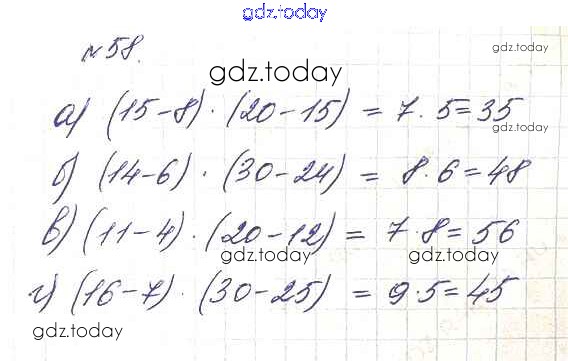 gdz.today
№58.
gdz.today
gdz.today
а) (15-8) · (20-15) = 7 · 5 = 35
gdz.today
б) (14-6) · (30-24) = 8 · 6 = 48
в) (11-4) · (20-12) = 7 · 8 = 56
gdz.today
gdz.today
г) (16-7) · (30-25) = 9 · 5 = 45
gdz.today